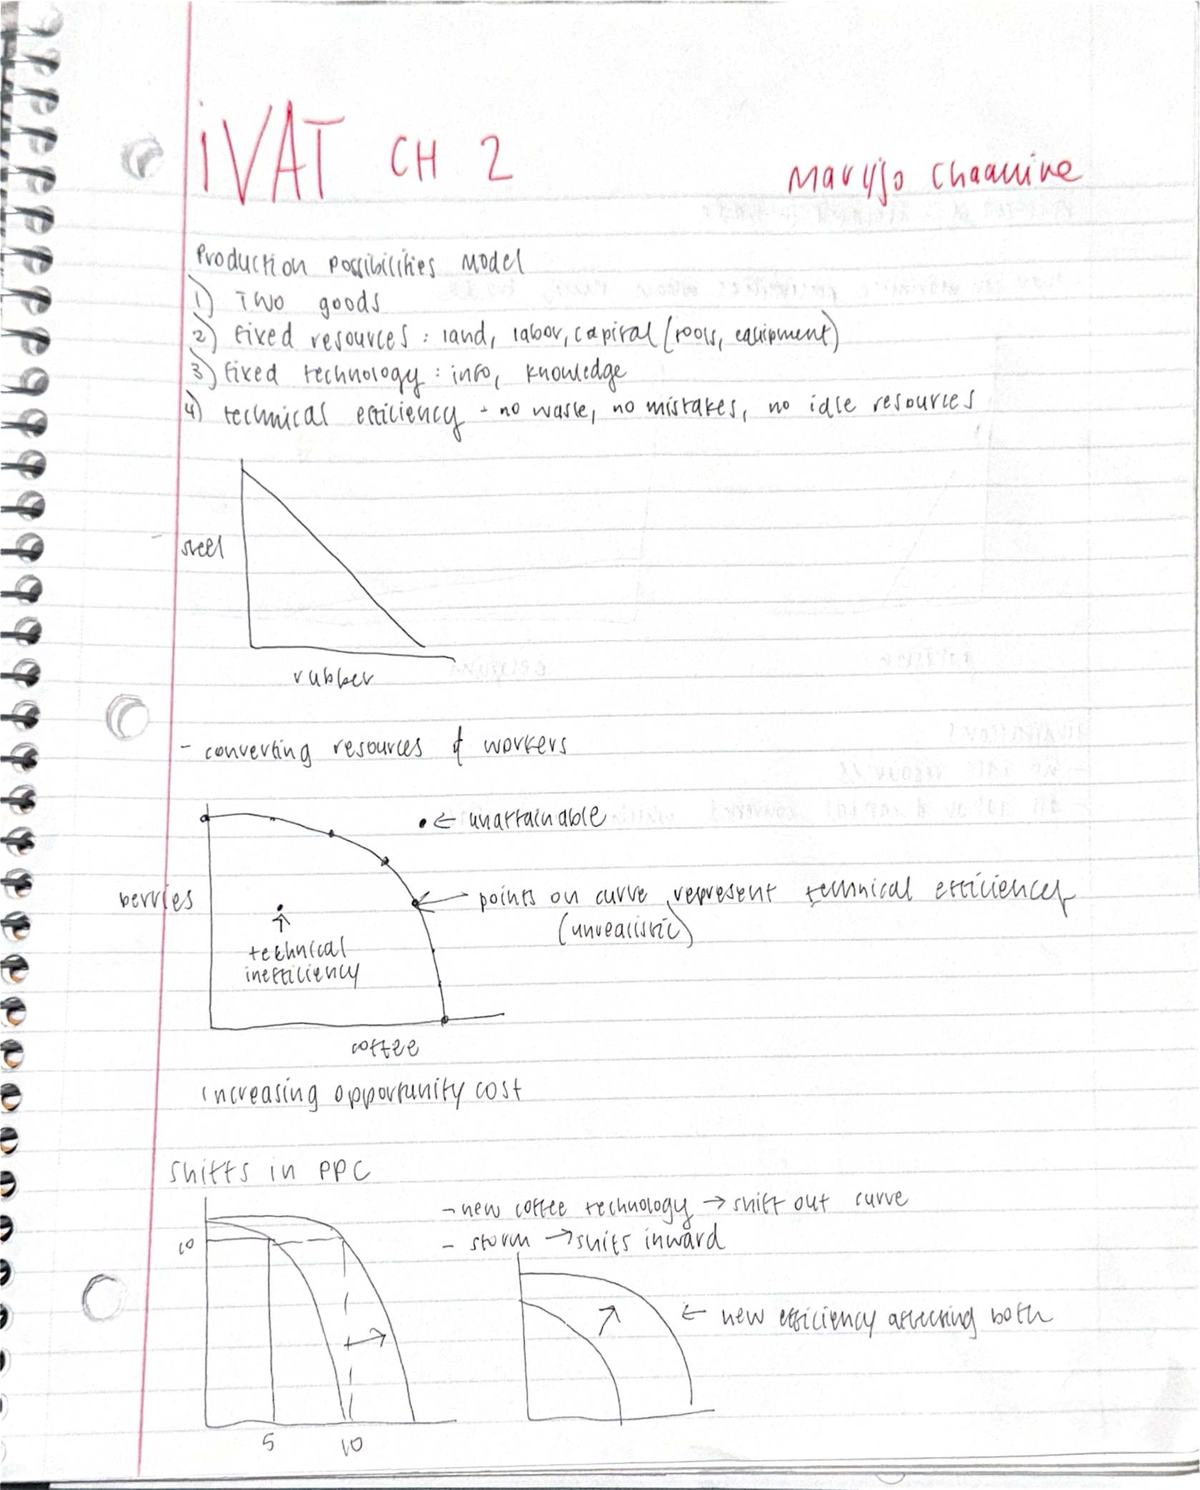 iVAT CH 2
Maryjo Chaanine
Production Possibilities Model
1) Two goods
2) fixed resources : land, labor, capital (tools, equipment)
3) fixed technology : info, knowledge
4) technical efficiency - no waste, no mistakes, no idle resources
steel
rubber
- converting resources & workers
← unattainable
berries
points on curve represent technical efficiency
(unrealistic)
technical
inefficiency
coffee
increasing opportunity cost
Shifts in PPC
- new coffee technology → shift out curve
- storm → shifts inward
10
← new efficiency affecting both
5 10